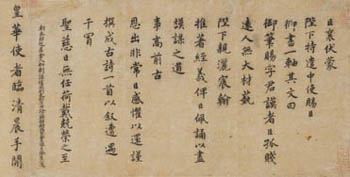 臣襄伏蒙
陛下特遣中使賜臣
御書一軸其文曰
御筆賜字君謨者臣孤賤
遠人無大材藝
陛下親灑宸翰
推著經義俾臣佩誦以盡
謨謀之道
事高前古
恩出非常臣感懼以還謹
撰成古詩一首以敘遭遇
干冒
聖慈臣無任荷戴兢榮之至
皇華使者臨清晨手開